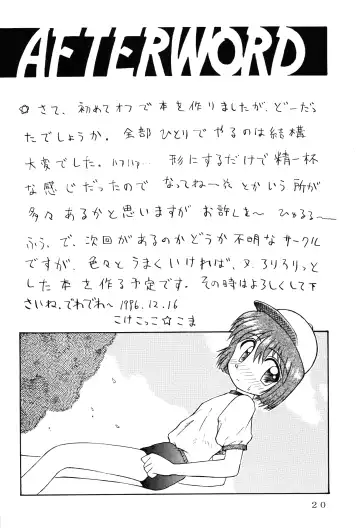 AFTERWORD
☆さて、初めてオフで本を作りましたが、どーだっ
たでしょうか。全部ひとりでやるのは結構
大変でした。ハフハフ… 形にするだけで精一杯
な感じだったので なってねーぞ とかいう所が
多々あるかと思いますが お許しを〜 ひゅるる〜
ふぅ、で、次回があるのかどうか不明なサークル
ですが、色々とうまくいければ、又ろりろりっと
した本を作る予定です。その時はよろしくして下
さいね。でわでわ〜 1996.12.16
こけこっこ☆こま
20